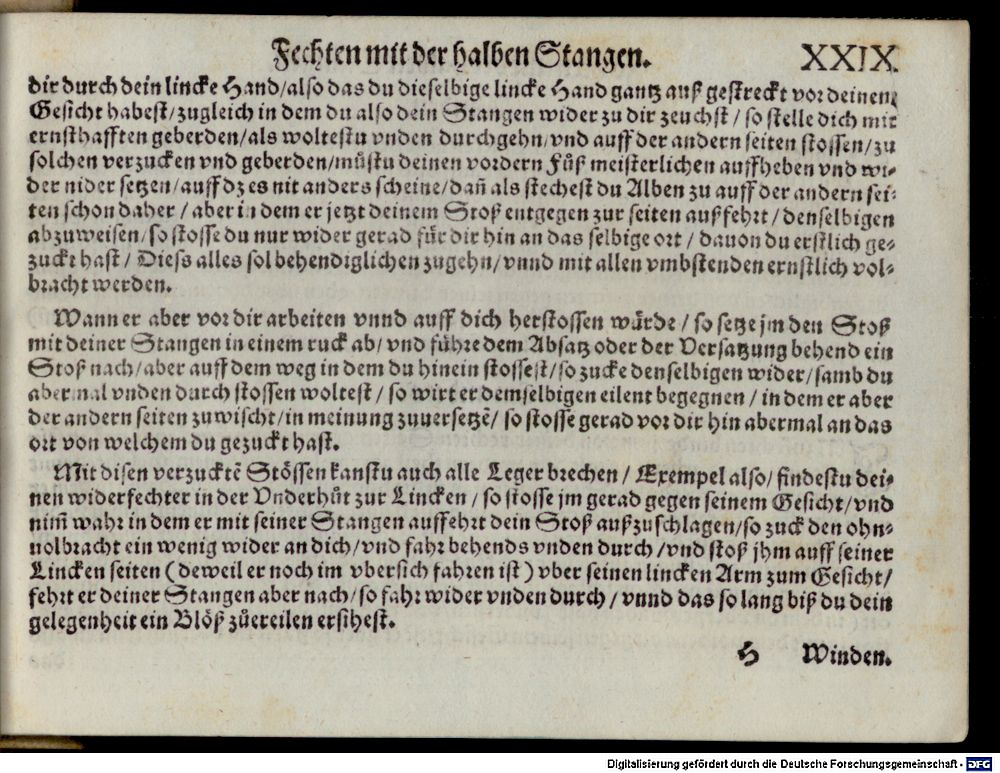 Fechten mit der halben Stangen. XXIX.
dir durch dein lincke Hand/also das du dieselbige lincke Hand gantz auß gestreckt vor deinem
Gesicht habest/zugleich in dem du also dein Stangen wider zu dir zeuchst/so stelle dich mit
ernsthafften geberden/als woltestu vnden durchgehn/vnd auff der andern seiten stossen/zu
solchen verzucken vnd geberden/můstu deinen vordern Fůß meisterlichen auffheben vnd wi-
der nider setzen/auff dz es nit anders scheine/dañ als stechest du Alben zu auff der andern sei-
ten schon daher/aber in dem er jetzt deinem Stoß entgegen zur seiten außfehrt/denselbigen
abzuweisen/so stosse du nur wider gerad für dir hin an das selbige ort/dauon du erstlich ge-
zuckt hast/Diess alles sol behendiglichen zugehn/vnnd mit allen vmbstenden ernstlich vol-
bracht werden.
Wann er aber vor dir arbeiten vnnd auff dich herstossen würde/so setze jm den Stoß
mit deiner Stangen in einem ruck ab/vnd führe dem Absatz oder der Versatzung behend ein
Stoß nach/aber auff dem weg in dem du hinein stossest/so zucke denselbigen wider/samb du
abermal vnden durch stossen woltest/so wirt er demselbigen eilent begegnen/in dem er aber
der andern seiten zuwischt/in meinung zuuersetzẽ/so stosse gerad vor dir hin abermal an das
ort von welchem du gezuckt hast.
Mit disen verzucktẽ Stössen kanstu auch alle Leger brechen/Exempel also/findestu dei-
nen widerfechter in der Vnderhůt zur Lincken/so stosse jm gerad gegen seinem Gesicht/vnd
nim̃ wahr in dem er mit seiner Stangen auffehrt dein Stoß außzuschlagen/so zuck den ohn-
uolbracht ein wenig wider an dich/vnd fahr behends vnden durch/vnd stoß jhm auff seiner
Lincken seiten (deweil er noch im vbersich fahren ist) vber seinen lincken Arm zum Gesicht/
fehrt er deiner Stangen aber nach/so fahr wider vnden durch/vnnd das so lang biß du dein
gelegenheit ein Blöß zůereilen ersihest.
H Winden.
Digitalisierung gefördert durch die Deutsche Forschungsgemeinschaft - DFG